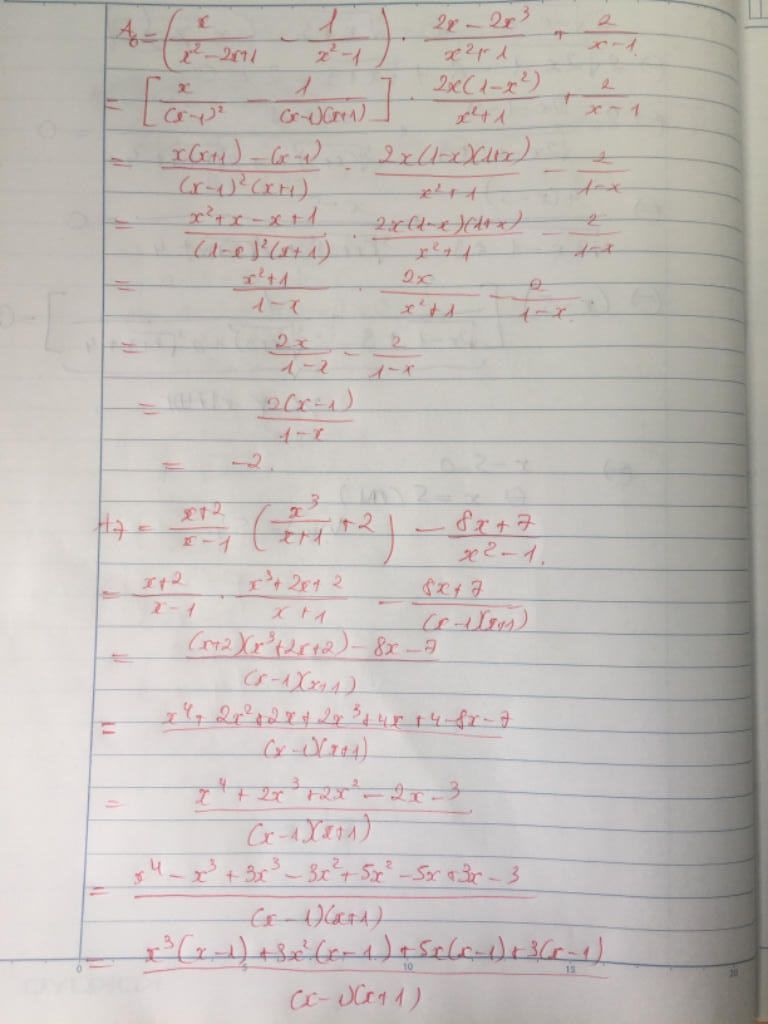 A6 = (x/(x²-2x+1) - 1/(x²-1)) · (2x-2x³)/(x²+1) + 2/(x-1)
= [x/(x-1)² - 1/((x-1)(x+1))] · 2x(1-x²)/(x²+1) + 2/(x-1)
= (x(x+1)-(x-1))/((x-1)²(x+1)) · 2x(1-x)(1+x)/(x²+1) - 2/(1-x)
= (x²+x-x+1)/((1-x)²(x+1)) · 2x(1-x)(1+x)/(x²+1) - 2/(1-x)
= (x²+1)/(1-x) · 2x/(x²+1) - 2/(1-x)
= 2x/(1-x) - 2/(1-x)
= 2(x-1)/(1-x)
= -2.
A7 = (x+2)/(x-1) (x³/(x+1) + 2) - (8x+7)/(x²-1).
= (x+2)/(x-1) · (x³+2x+2)/(x+1) - (8x+7)/((x-1)(x+1))
= ((x+2)(x³+2x+2)-8x-7)/((x-1)(x+1))
= (x⁴+2x²+2x+2x³+4x+4-8x-7)/((x-1)(x+1))
= (x⁴+2x³+2x²-2x-3)/((x-1)(x+1))
= (x⁴-x³+3x³-3x²+5x²-5x+3x-3)/((x-1)(x+1))
= (x³(x-1)+3x²(x-1)+5x(x-1)+3(x-1))/((x-1)(x+1))
0 5 10 15 20